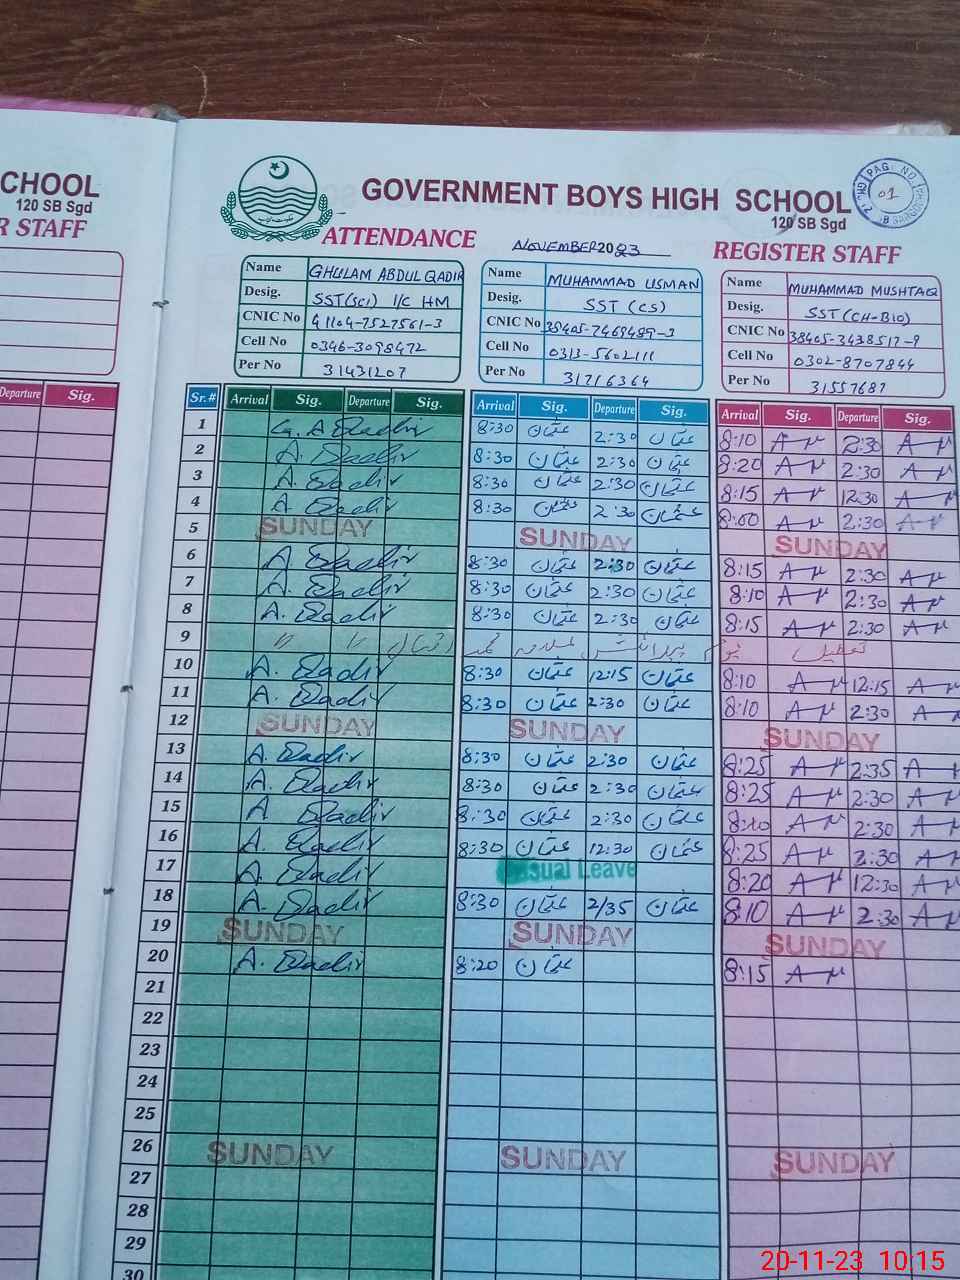 CHOOL
120 SB Sgd
R STAFF
GOVERNMENT BOYS HIGH SCHOOL
120 SB Sgd
PAGE NO
01
ATTENDANCE
NOVEMBER 2023
REGISTER STAFF
Name GHULAM ABDUL QADIR
Desig. SST(SCI) I/C HM
CNIC No 41104-7527561-3
Cell No 0346-3098472
Per No 31431207
Name MUHAMMAD USMAN
Desig. SST (CS)
CNIC No 38405-7469489-3
Cell No 0313-5602111
Per No 31716364
Name MUHAMMAD MUSHTAQ
Desig. SST (CH-BIO)
CNIC No 38405-3438517-9
Cell No 0302-8707844
Per No 31557687
Departure Sig.
Sr.# Arrival Sig. Departure Sig. Arrival Sig. Departure Sig. Arrival Sig. Departure Sig.
1 G. A Qadir 8:30 عثمان 2:30 عثمان 8:10 2:30
2 A. Qadir 8:30 عثمان 2:30 عثمان 8:20 2:30
3 A. Qadir 8:30 عثمان 2:30 عثمان 8:15 12:30
4 A Qadir 8:30 عثمان 2:30 عثمان 8:00 2:30
5 SUNDAY SUNDAY SUNDAY
6 A. Qadir 8:30 عثمان 2:30 عثمان 8:15 2:30
7 A. Qadir 8:30 عثمان 2:30 عثمان 8:10 2:30
8 A. Qadir 8:30 عثمان 2:30 عثمان 8:15 2:30
9 " " اقبال محمد علامہ پیدائش یوم تعطیل
10 A. Qadir 8:30 عثمان 12:15 عثمان 8:10 12:15
11 A. Qadir 8:30 عثمان 2:30 عثمان 8:10 2:30
12 SUNDAY SUNDAY SUNDAY
13 A. Qadir 8:30 عثمان 2:30 عثمان 8:25 2:35
14 A. Qadir 8:30 عثمان 2:30 عثمان 8:25 2:30
15 A Qadir 8:30 عثمان 2:30 عثمان 8:10 2:30
16 A. Qadir 8:30 عثمان 12:30 عثمان 8:25 2:30
17 A. Qadir Casual Leave 8:20 12:30
18 A. Qadir 8:30 عثمان 2/35 عثمان 8:10 2:30
19 SUNDAY SUNDAY SUNDAY
20 A. Qadir 8:20 عثمان 8:15
21
22
23
24
25
26 SUNDAY SUNDAY SUNDAY
27
28
29
30
20-11-23 10:15